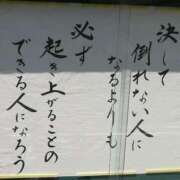 決して
倒れない人に
なるよりも
必ず
起き上がることの
できる人になろう